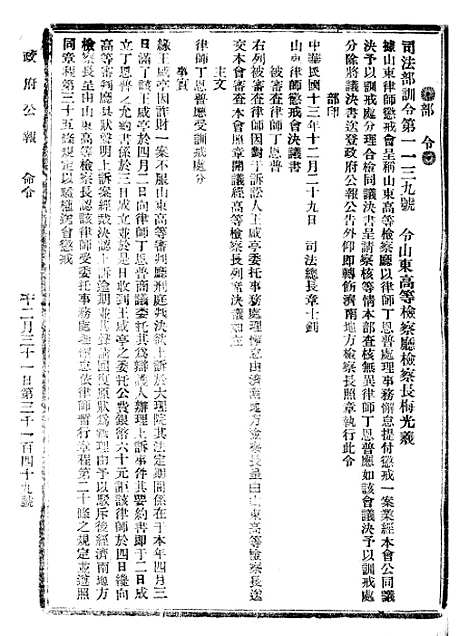 部令
司法部訓令第一一三九號　令山東高等檢察廳檢察長梅光羲
據山東律師懲戒會呈稱山東高等檢察廳以律師丁恩普處理事務懈怠提付懲戒一案業經本會公同議
決予以訓戒處分理合檢同議決書呈請察核等情本部查核無異律師丁恩普應如該會議決予以訓戒處
分除將議決書送登政府公報公告外仰即轉飭濟南地方檢察長照章執行此令
部印
中華民國十三年十二月二十九日　司法總長章士釗
山東律師懲戒會決議書
被審查律師丁恩普
右列被審查律師因對于訴訟人王咸亭委托事務處理懈怠由濟南地方檢察長呈由山東高等檢察長送
交審查本會照章開議經高等檢察長列席決議如左
主文
律師丁恩普應受訓戒處分
事實
緣王咸亭因詐財一案不服山東高等審判廳刑庭判決上訴於大理院其法定期間係在于本年四月三
日滿了該王咸亭於四月二日向律師丁恩普商議委托其爲辯護人辦理上訴事件其要約書即于二日成
立丁恩普之允約書係於三日成立並於是日收到王咸亭之委托公費銀幣六十元詎該律師於四日纔向
高等審判廳具狀聲明上訴案經裁決上訴逾期
檢察長呈由山東高等檢察長認該律師受委托事務處理懈怠依律師暫行章程第二十條之規定並遵照
同章程第三十五條規定
政府公報　命令
十二月三十一日第三千一百四十九號